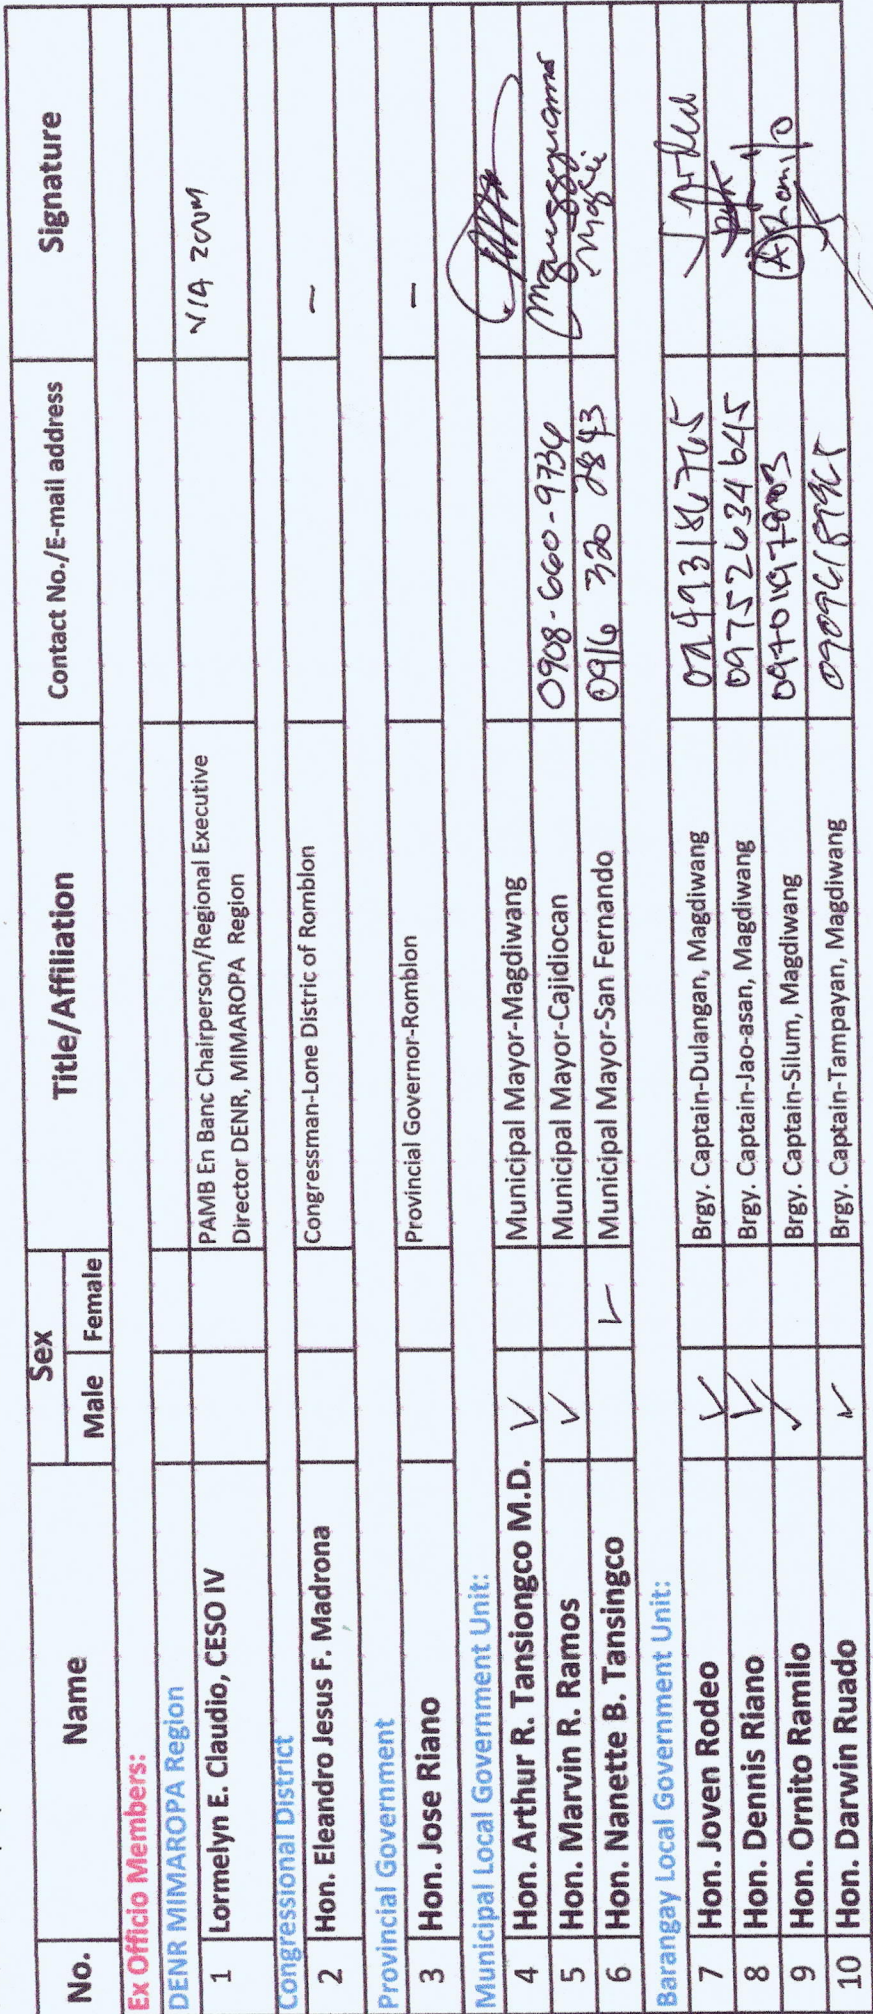 No. Name Sex Title/Affiliation Contact No./E-mail address Signature
Male Female
Ex Officio Members:
DENR MIMAROPA Region
1 Lormelyn E. Claudio, CESO IV PAMB En Banc Chairperson/Regional Executive VIA ZOOM
Director DENR, MIMAROPA Region
Congressional District
2 Hon. Eleandro Jesus F. Madrona Congressman-Lone Distric of Romblon –
Provincial Government
3 Hon. Jose Riano Provincial Governor-Romblon –
Municipal Local Government Unit:
4 Hon. Arthur R. Tansiongco M.D. ✓ Municipal Mayor-Magdiwang
5 Hon. Marvin R. Ramos ✓ Municipal Mayor-Cajidiocan 0908-660-9734
6 Hon. Nanette B. Tansingco ✓ Municipal Mayor-San Fernando 0916 320 2843
Barangay Local Government Unit:
7 Hon. Joven Rodeo ✓ Brgy. Captain-Dulangan, Magdiwang
8 Hon. Dennis Riano ✓ Brgy. Captain-Jao-asan, Magdiwang 09752634645
9 Hon. Ornito Ramilo ✓ Brgy. Captain-Silum, Magdiwang
10 Hon. Darwin Ruado ✓ Brgy. Captain-Tampayan, Magdiwang